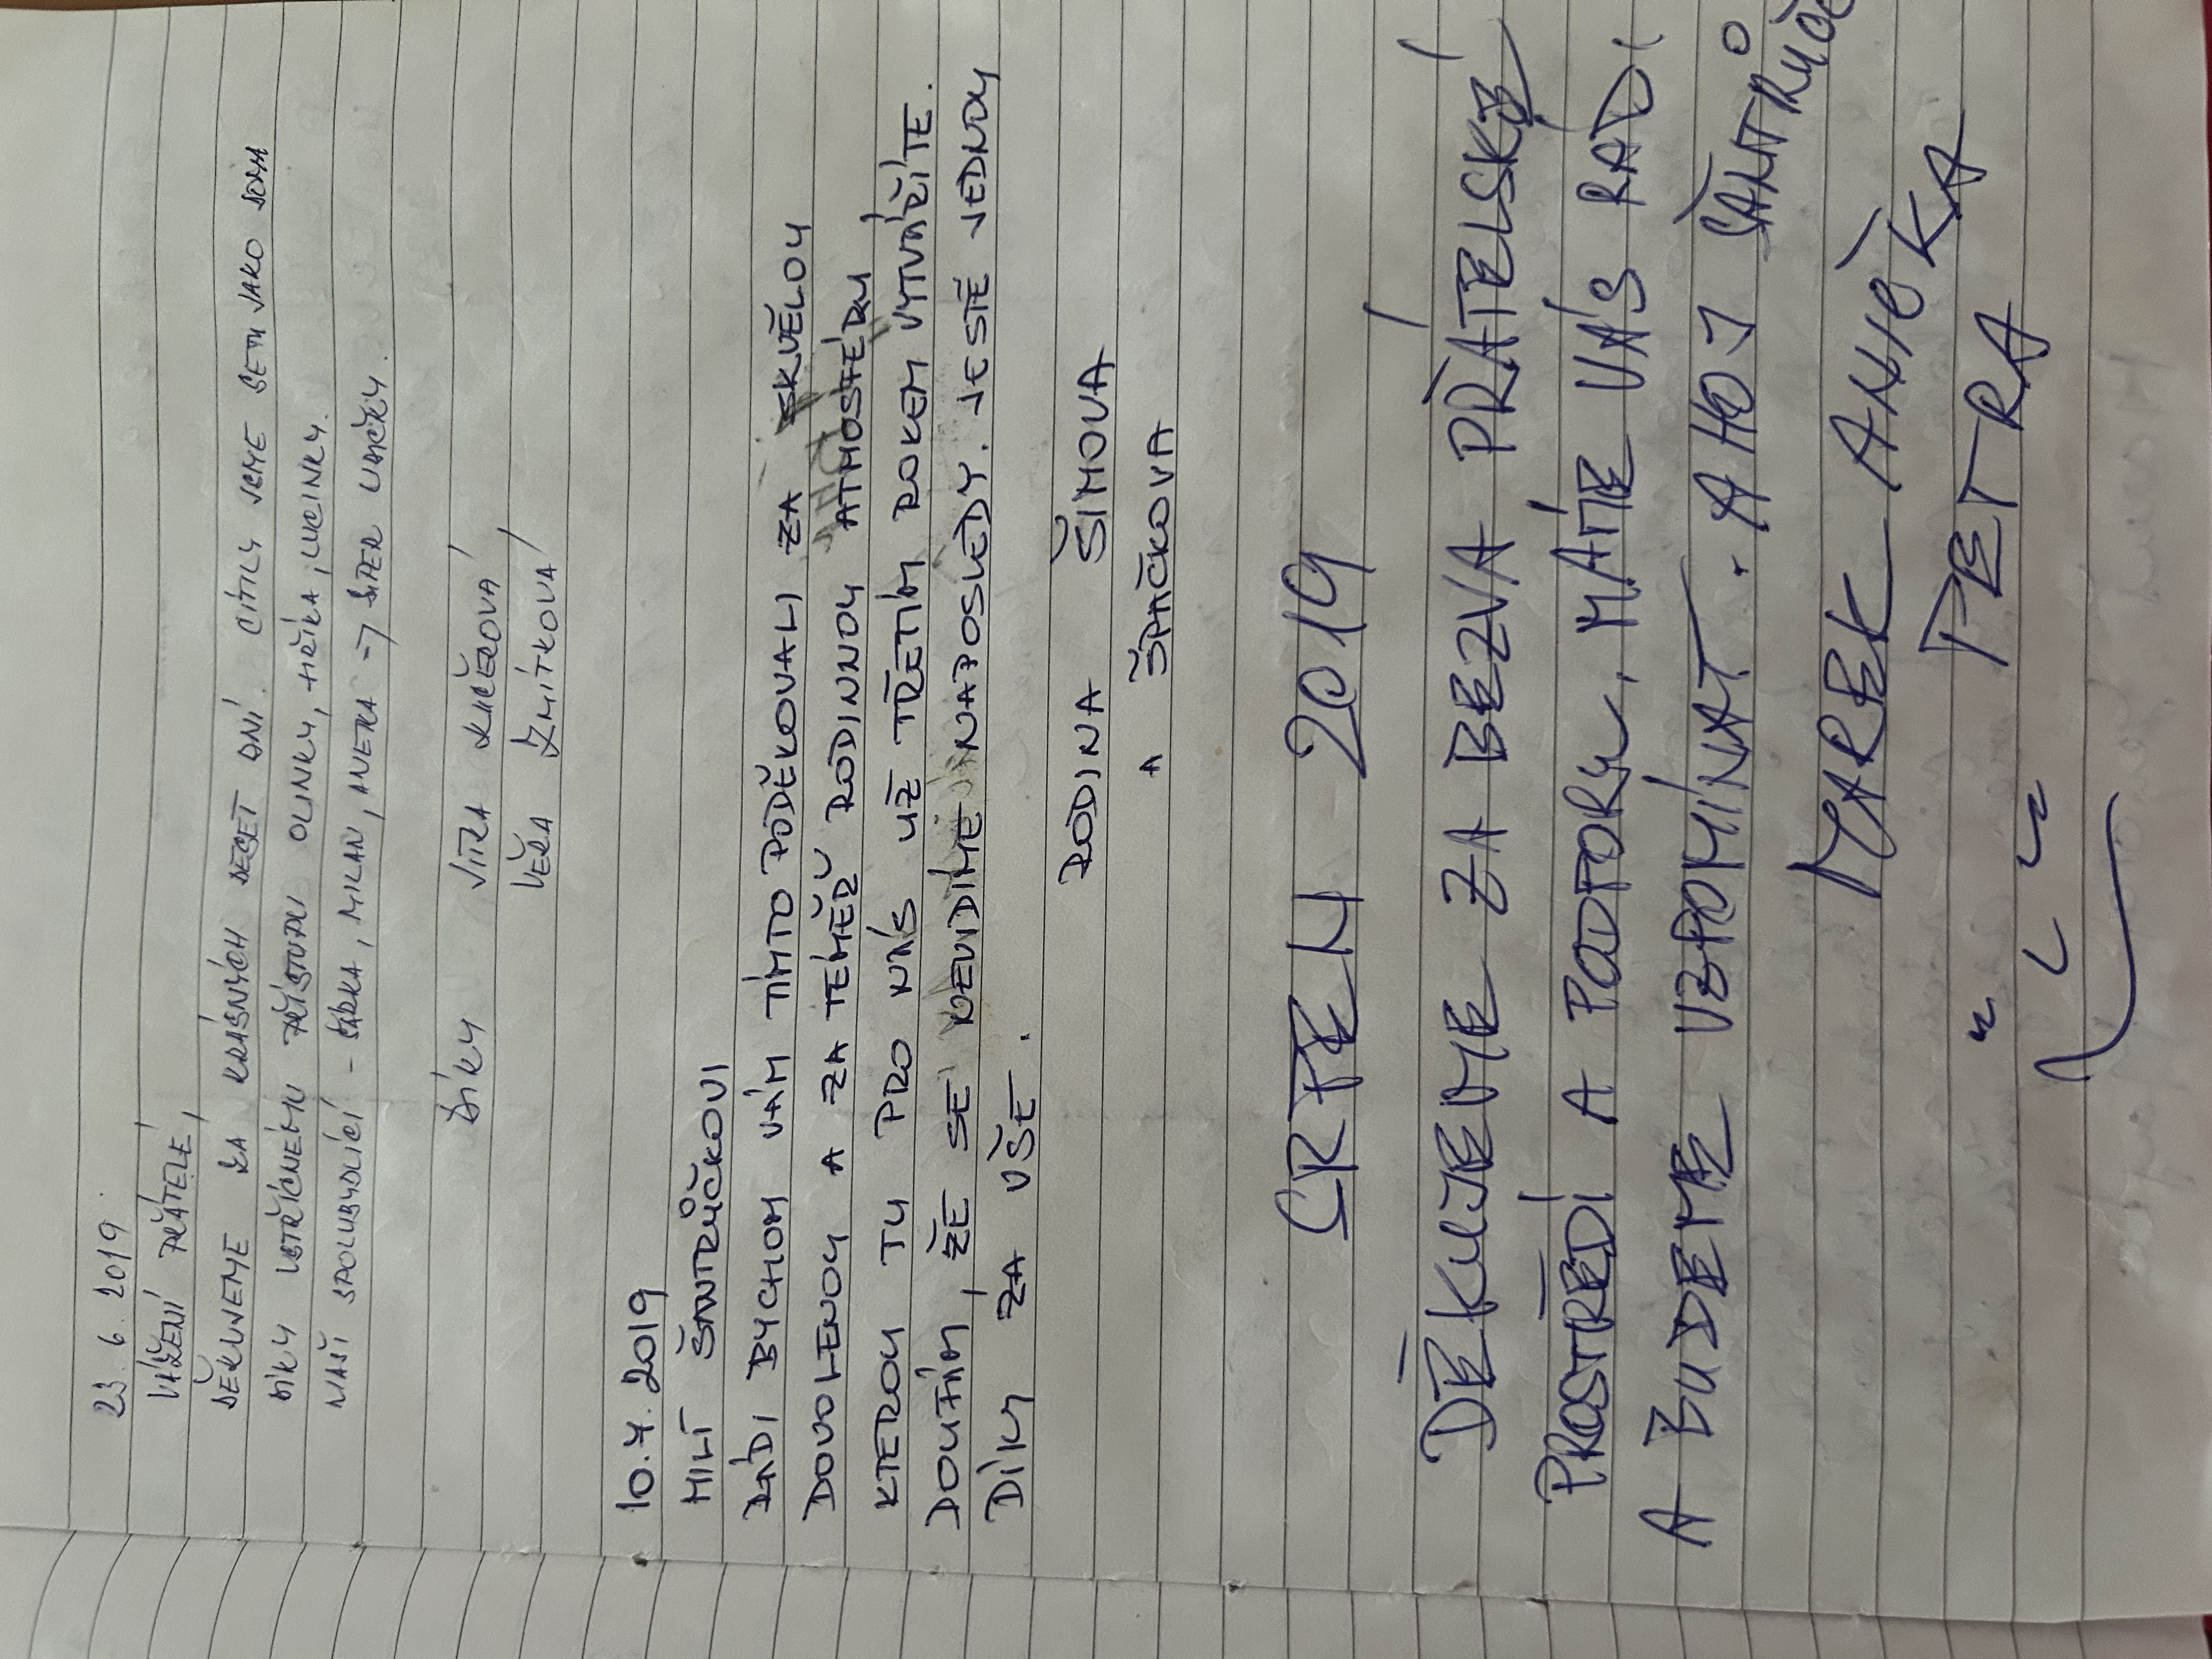 23. 6. 2019
VÁŽENÍ PŘÁTELÉ,
DĚKUJEME ZA KRÁSNÝCH DESET DNÍ. CÍTILY JSME SE TU JAKO DOMA
DÍKY VSTŘÍCNÉMU PŘÍSTUPU OLINKY, JIŘÍKA, LUCINKY.
NAŠI SPOLUBYDLÍCÍ - ŠÁRKA, MILAN, ANETKA -> SUPER VDĚČNÍ.
DÍKY JITKA KUČEROVÁ
VĚRA ŽMÍTKOVÁ
10.7.2019
MILÍ ŠANTRŮČKOVI
RÁDI BYCHOM VÁM TÍMTO PODĚKOVALI ZA SKVĚLOU
DOVOLENOU A ZA TÉMĚŘ RODINNOU ATMOSFÉRU
KTEROU TU PRO NÁS UŽ TŘETÍM ROKEM VYTVÁŘÍTE.
DOUFÁM, ŽE SE NEVIDÍME NAPOSLEDY. JEŠTĚ JEDNOU
DÍKY ZA VŠE.
RODINA ŠIMOVA
A ŠPAČKOVA
SRPEN 2019
DĚKUJEME ZA BEZVA PŘÁTELSKÉ
PROSTŘEDÍ A PODPORU, MÁME VÁS RÁDI
A BUDEME VZPOMÍNAT. AHOJ
MAREK ANIČKA
PETRA